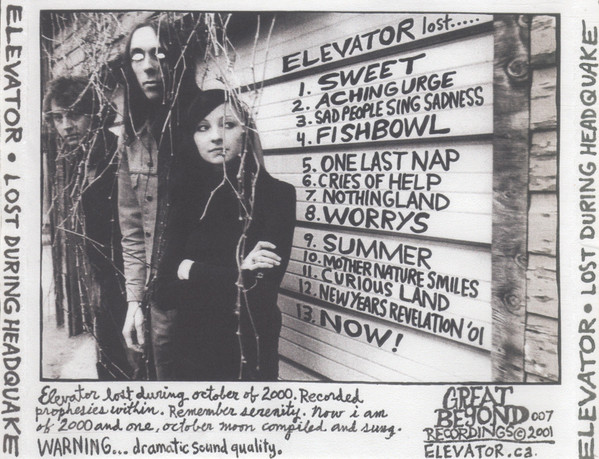 ELEVATOR • LOST DURING HEADQUAKE
ELEVATOR lost.....
1. SWEET
2. ACHING URGE
3. SAD PEOPLE SING SADNESS
4. FISHBOWL
5. ONE LAST NAP
6. CRIES OF HELP
7. NOTHINGLAND
8. WORRYS
9. SUMMER
10. MOTHER NATURE SMILES
11. CURIOUS LAND
12. NEW YEARS REVELATION '01
13. NOW!
Elevator lost during october of 2000. Recorded
prophesies within. Remember serenity. Now i am
of 2000 and one, october moon compiled and sung.
WARNING... dramatic sound quality.
GREAT
BEYOND 007
RECORDINGS © 2001
ELEVATOR.ca.
ELEVATOR • LOST DURING HEADQUAKE